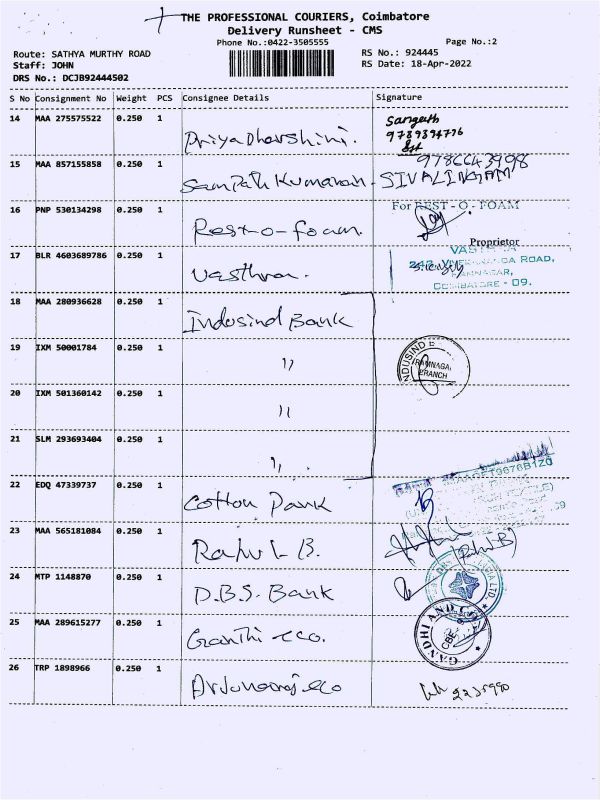 THE PROFESSIONAL COURIERS, Coimbatore
Delivery Runsheet - CMS
Phone No.:0422-3505555
Page No.:2
Route: SATHYA MURTHY ROAD
RS No.: 924445
Staff: JOHN
RS Date: 18-Apr-2022
DRS No.: DCJB92444502
S No Consignment No Weight PCS Consignee Details Signature
14 MAA 275575522 0.250 1 Priya Dharshini. Sangeeth
9789894776
15 MAA 857155858 0.250 1 Sampath Kumaran - SIVALINGAM
9786643998
16 PNP 530134298 0.250 1 Rest-o-foam. For REST - O - FOAM
Proprietor
17 BLR 4603689786 0.250 1 Vasthra.
ROAD,
COIMBATORE - 09.
18 MAA 280936628 0.250 1 Indusind Bank
19 IXM 50001784 0.250 1 ,, INDUSIND
RAMNAGAR
BRANCH
20 IXM 501360142 0.250 1 ,,
21 SLM 293693404 0.250 1 ,,
22 EDQ 47339737 0.250 1 Cotton Park
23 MAA 565181084 0.250 1 Rahul B. (Rahul B)
24 MTP 1148870 0.250 1 D.B.S. Bank
25 MAA 289615277 0.250 1 Ganthi &co. GANDHI AND CO
CBE
26 TRP 1898966 0.250 1 Arjunaraj &co